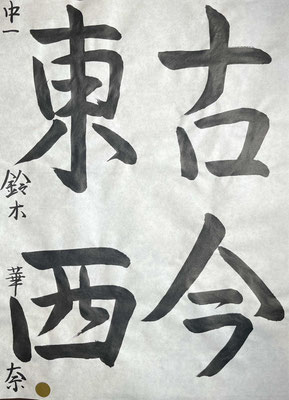 古今
東西
中一 鈴木 華奈